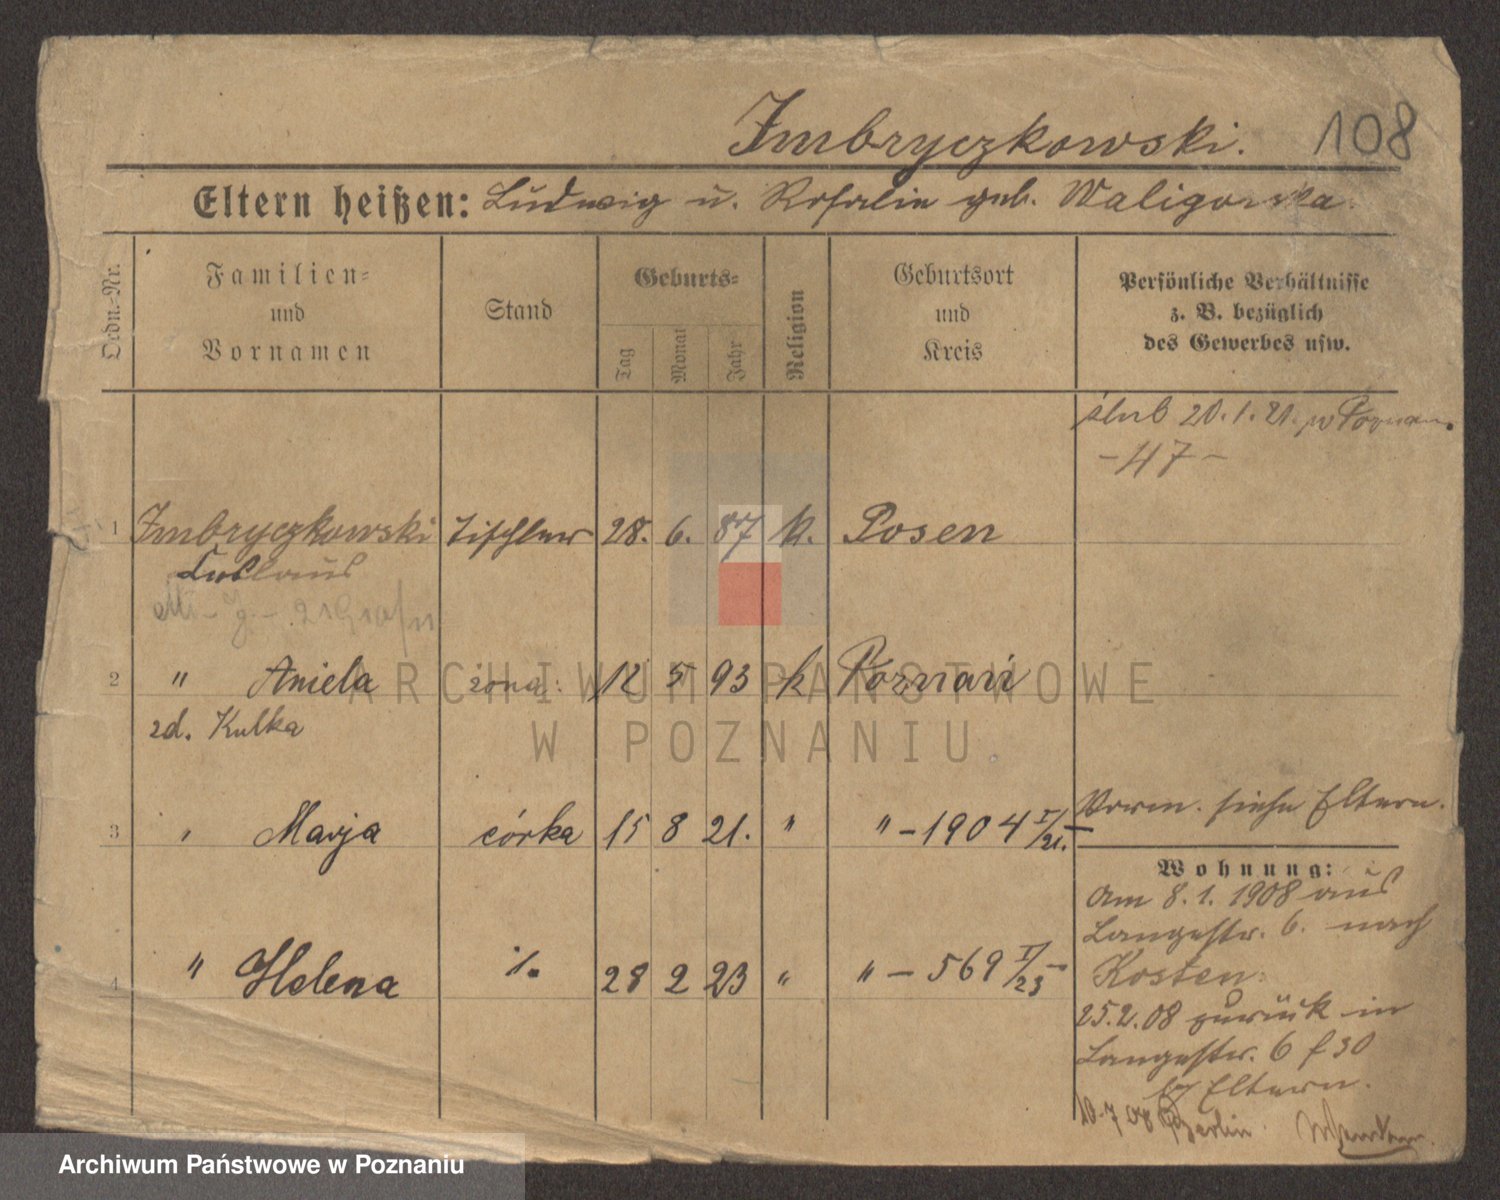 Imbryczkowski. 108
Eltern heißen: Ludwig u. Rosalie geb. Waligorska.
Ordn.-Nr.
Familien-
und
Vornamen
Stand
Geburts-
Tag
Monat
Jahr
Religion
Geburtsort
und
Kreis
Persönliche Verhältnisse
z. B. bezüglich
des Gewerbes usw.
ślub 20.1.21. w Poznan.
-47-
1 Imbryczkowski Tischler 28. 6. 87 k. Posen
Ladislaus
2 " Aniela żona: 12 5 93 k Poznań
zd. Kulka
3 " Marja córka 15 8 21. " " - 1904 I/21. -
4 " Helena /. 28 2 23 " " - 569 I/23 -
Vorm. siehe Eltern.
Wohnung:
Am 8.1. 1908 aus
Langestr. 6. nach
Kosten.
25.2.08 zurück in
Langestr. 6 f 30
bz Eltern.
10.7 08 Berlin.
ARCHIWUM PAŃSTWOWE
W POZNANIU
Archiwum Państwowe w Poznaniu